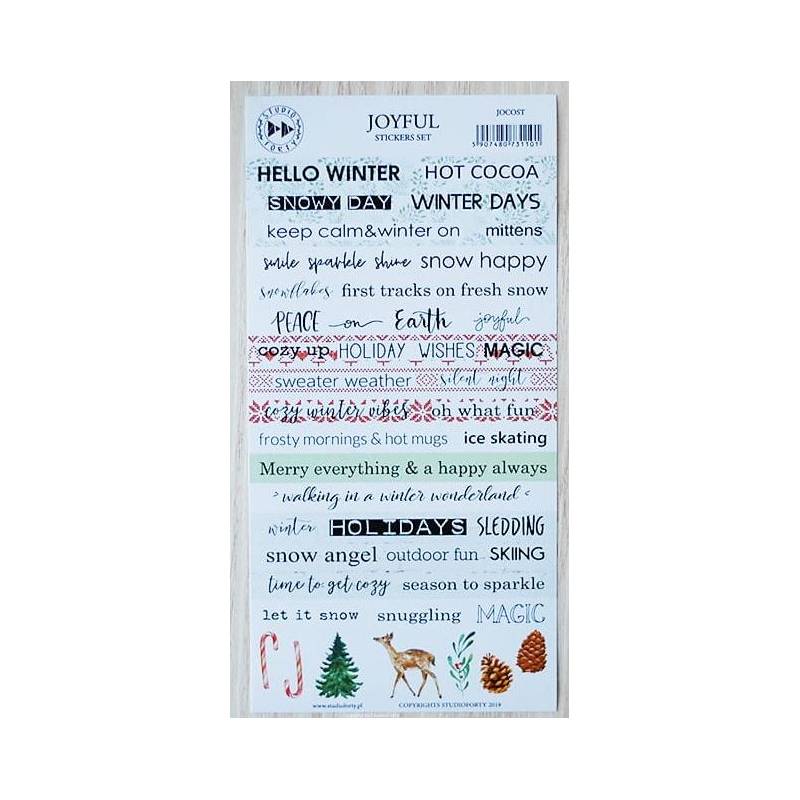 STUDIO FORTY
JOYFUL
STICKERS SET
JOCOST
5 907480 731101
HELLO WINTER HOT COCOA
SNOWY DAY WINTER DAYS
keep calm&winter on mittens
smile sparkle shine snow happy
snowflakes first tracks on fresh snow
PEACE on Earth joyful
cozy up HOLIDAY WISHES MAGIC
sweater weather silent night
cozy winter vibes oh what fun
frosty mornings & hot mugs ice skating
Merry everything & a happy always
walking in a winter wonderland
winter HOLIDAYS SLEDDING
snow angel outdoor fun SKIING
time to get cozy season to sparkle
let it snow snuggling MAGIC
www.studioforty.pl COPYRIGHTS STUDIOFORTY 2019